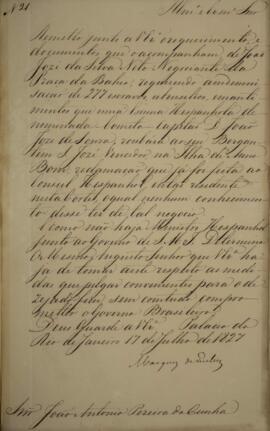 Nº 21
Illmo e Exmo Snr
Remetto junto a VEx.ª o requerimento, e
documentos, que o acompanham, de João
Jozé da Silva Neto Negociante da
Praça da Bahia, requerendo a indemni
sação de 277 escravos, e mantimentos
mentos que uma Escuna Hespanhola de
nominada capitão D. João
Jozé de roubára ao seu Bergan
tim S. Jozé na Ilha de Anno
Bom, reclamação que já foi feita ao
Consul Hespanhol, então residente
nesta Corte, o qual nenhum conhecimento
disse ter de tal negocio.
E como não haja Ministro Hespanhol
junto ao Governo de S. M. I. Determina
O Mesmo Augusto Senhor que VEx.ª ha
ja de tomar a este respeito as medi
das que julgar convenientes para o de
zejado fim, sem comtudo compro
metter o Governo Brasileiro.
Deus Guarde a VEx.ª Palacio do
Rio de Janeiro 17 de Julho de 1827
Marquez de Queluz
Snr João Antonio Pereira da Cunha